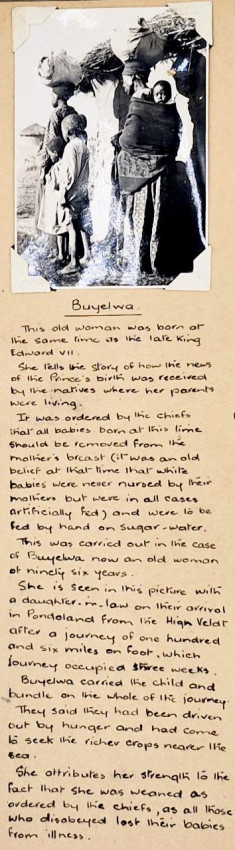 Buyelwa.
This old woman was born at
the same time as the late King
Edward VII.
She tells the story of how the news
of the Prince's birth was received
by the natives where her parents
were living.
It was ordered by the chiefs
that all babies born at this time
should be removed from the
mother's breast (it was an old
belief at that time that white
babies were never nursed by their
mothers but were in all cases
artificially fed) and were to be
fed by hand on sugar-water.
This was carried out in the case
of Buyelwa now an old woman
of ninety six years.
She is seen in this picture with
a daughter-in-law on their arrival
in Pondoland from the High Veldt
after a journey of one hundred
and six miles on foot, which
journey occupied three weeks.
Buyelwa carried the child and
bundle on the whole of the journey.
They said they had been driven
out by hunger and had come
to seek the richer crops nearer the
sea.
She attributes her strength to the
fact that she was weaned as
ordered by the chiefs, as all those
who disobeyed lost their babies
from illness.